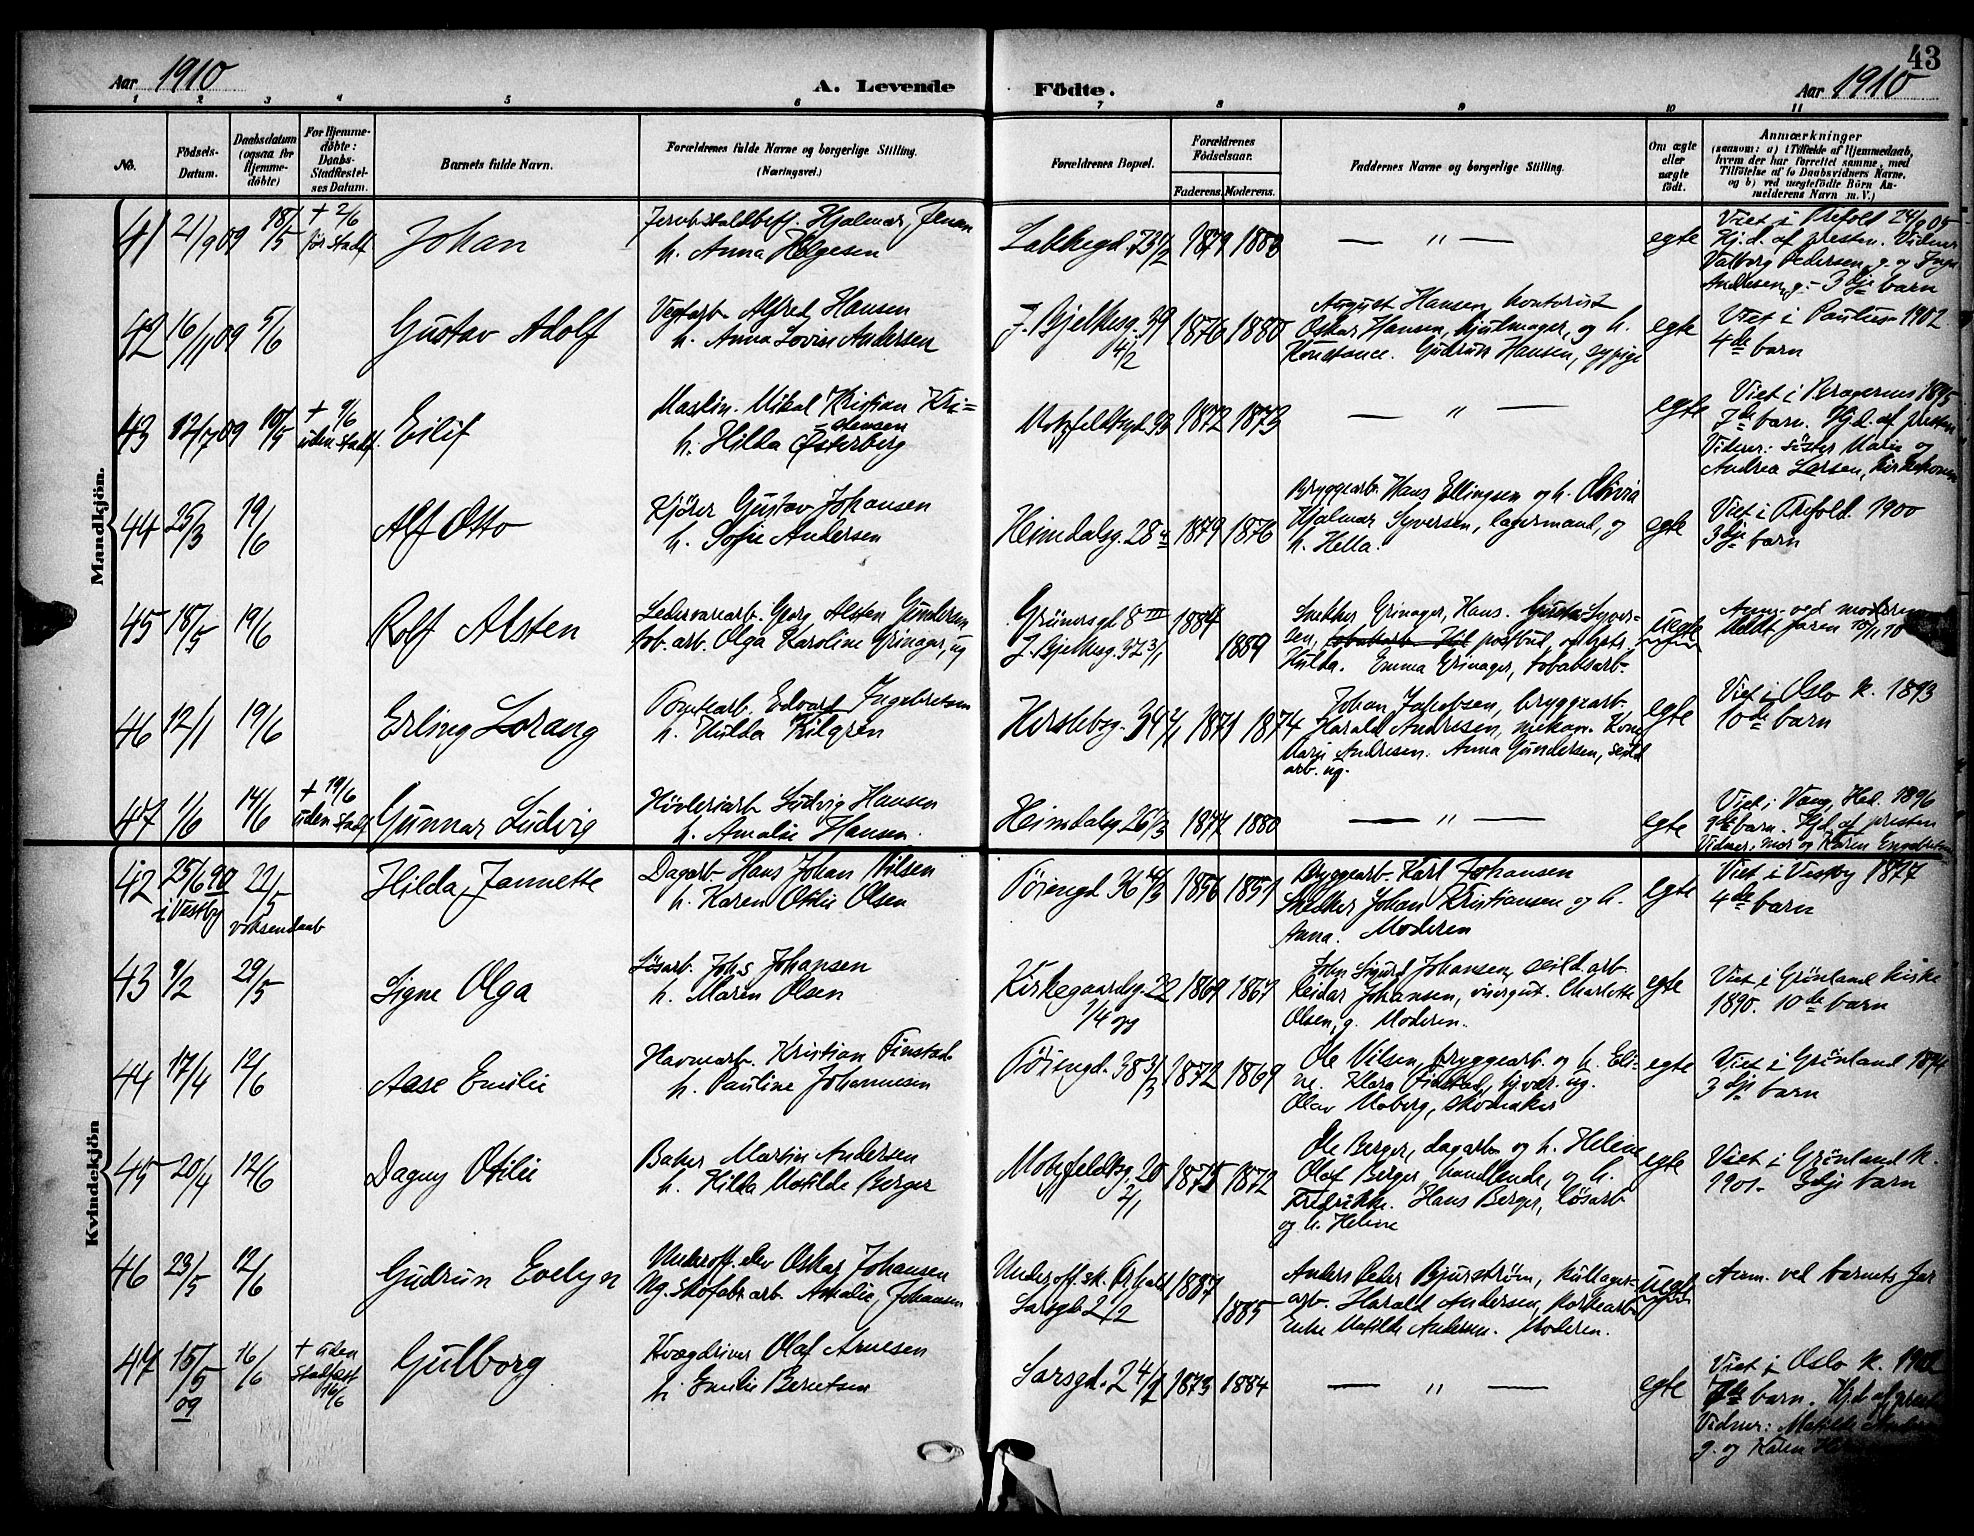 43
Aar 1910 A. Levende Födte. Aar 1910
1 2 3 4 5 6 7 8 9 10 11
No.
Födsels-Datum.
Daabsdatum (ogsaa for Hjemme-döbte)
For Hjemme-döbte: Daabs-Stadfæstel-ses Datum.
Barnets fulde Navn.
Forældrenes fulde Navne og borgerlige Stilling. (Næringsvei.)
Forældrenes Bopæl.
Forældrenes Födselsaar.
Faderens. Moderens.
Faddernes Navne og borgerlige Stilling.
Om ægte eller uægte födt.
Anmærkninger
(saasom: a) i Tilfælde af Hjemmedaab,
hvem der har forrettet samme, med
Tilföielse af to Daabsvidners Navne,
og b) ved uægtefödte Börn An-
melderens Navn m. V.)
Mandkjön.
41 21/9 09 18/5 + 2/6 før stadf. Johan
Hjalmar Jensen
h. Anna Helgesen
Lakkegd. 73 1879 1883 — " — egte
Viet i 24/9 05
Hj.d. af presten. Vidner
Valborg Pedersen, g. og
Andresen, g. - 3dje barn
42 16/11 09 5/6 Gustav Adolf
Alfred Hansen
h. Anna Lovise Andersen
J. Bjelkesg. 39 1876 1880
August Hansen, kontorist
Oskar Hansen, hjulmager, og h.
Konstance. Gudrun Hansen, sypige
egte
Viet i Paulus 1902
4de barn
43 12/7 09 10/5 + 9/6 uden stadf. Eilif
Maskin. Mikal Kristian Kri-
stensen
h. Hilda Østerberg
Motzfeldtsgd. 93 1872 1873 — " — egte
Viet i Bragernes 1895
7de barn. Hj.d. af presten
Vidner: søster Marie og
Andrea Larsen,
44 25/3 19/6 Alf Otto
Kjører Gustav Johansen
h. Sofie Andersen
Heimdalsg. 28 1879 1876
Bryggearb. Hans Ellingsen og h. Olivia
Hjalmar Syversen, lagermand, og
h. Hella.
egte
Viet i 1900
3dje barn
45 18/5 19/6 Rolf Alsten
Ledervarearb. Georg Alsten Gundersen
tob. arb. Olga Karoline Grinager, ug
Grünersgd 8 III 1884
J. Bjelkesg. 37 3/1 1889
Snekker Grinager, Hans Syver-
sen, postbud, og
Hulda. Emma Grinager, tobaksarb.
uegte
Anm. ved moderen
46 12/1 19/6 Erling Lorang
Edvart Ingebretsen
h. Hulda Kilgren
Herslebsg. 34 2/1 1871 1874
Johan Jakobsen, bryggearb.
Harald Andresen, mekan. Kone
Marie Andresen. Anna Gundersen, seild.
arb. ug.
egte
Viet i Oslo k. 1893
10de barn
47 1/6 14/6 + 19/6 uden stadf. Gunnar Ludvig
Høvleriarb. Ludvig Hansen
h. Amalie Hansen.
Heimdalsg. 26 1877 1880 — " — egte
Viet i Vang, Hed. 1896
barn. Hj.d. af presten
Vidner, mor og Karen
Kvindekjön
42 25/6 90 i Vestby 22/5 voksendaab Hilda Jannette
Dagarb. Hans Johan Nilsen
h. Karen Otilie Olsen
Tøiengd. 36 4/3 1856 1851
Bryggearb. Karl Johansen
Snekker Johan Kristiansen og h.
Anna. Moderen
egte
Viet i Vestby 1877
4de barn
43 9/2 29/5 Signe Olga
Løsarb. Johs Johansen
h. Maren Olsen
Kirkegaardsg. 22 1/4 og 1869 1867
John Sigurd Johansen, seild.arb.
Reidar Johansen, visergut. Charlotte
Olsen, g. Moderen.
egte
Viet i Grønland kirke
1890. 10de barn
44 17/4 12/6 Aase Emilie
Havnearb. Kristian Finstad
h. Pauline Johannesen
Tøiengd. 38 3/3 1872 1869
Ole Nilsen, bryggearb. og h. Eli-
ne. Klara Finstad, ug.
Olav Moberg, skomaker
egte
Viet i Grønland 1894
3dje barn
45 20/4 12/6 Dagny Otilie
Baker Martin Andersen
h. Hilda Matilde Berger
Motzfeldtsg. 20 2/1 1875 1872
Ole Berger, dagarb. og h. Helene
Olaf Berger, handlende, og h.
Fredrikke. Hans Berger, løsarb.
og h. Helene
egte
Viet i Grønland k.
1901. 3dje barn
46 23/5 12/6 Gudrun Evelyn
Underoff. elev Oskar Johansen
Ug. skofabr.arb. Amalie Johansen
Underoff.sk. 1887
Sarsgd 2 2/2 1885
Anders Peder Bjurstrøm,
arb. Harald Andersen, korkearb.
Enke Matilde Andersen. Moderen.
uegte
Anm. ved barnets far
47 15/5 09 16/6 + uden stadfest 16/6 Gulborg
Kvægdriver Olaf Arnesen
h. Emilie Berntsen
Sarsgd. 2 1873 1884 — " — egte
Viet i Oslo k.
barn. Hj.d. af presten
Vidner: Matilde
g. og Karen